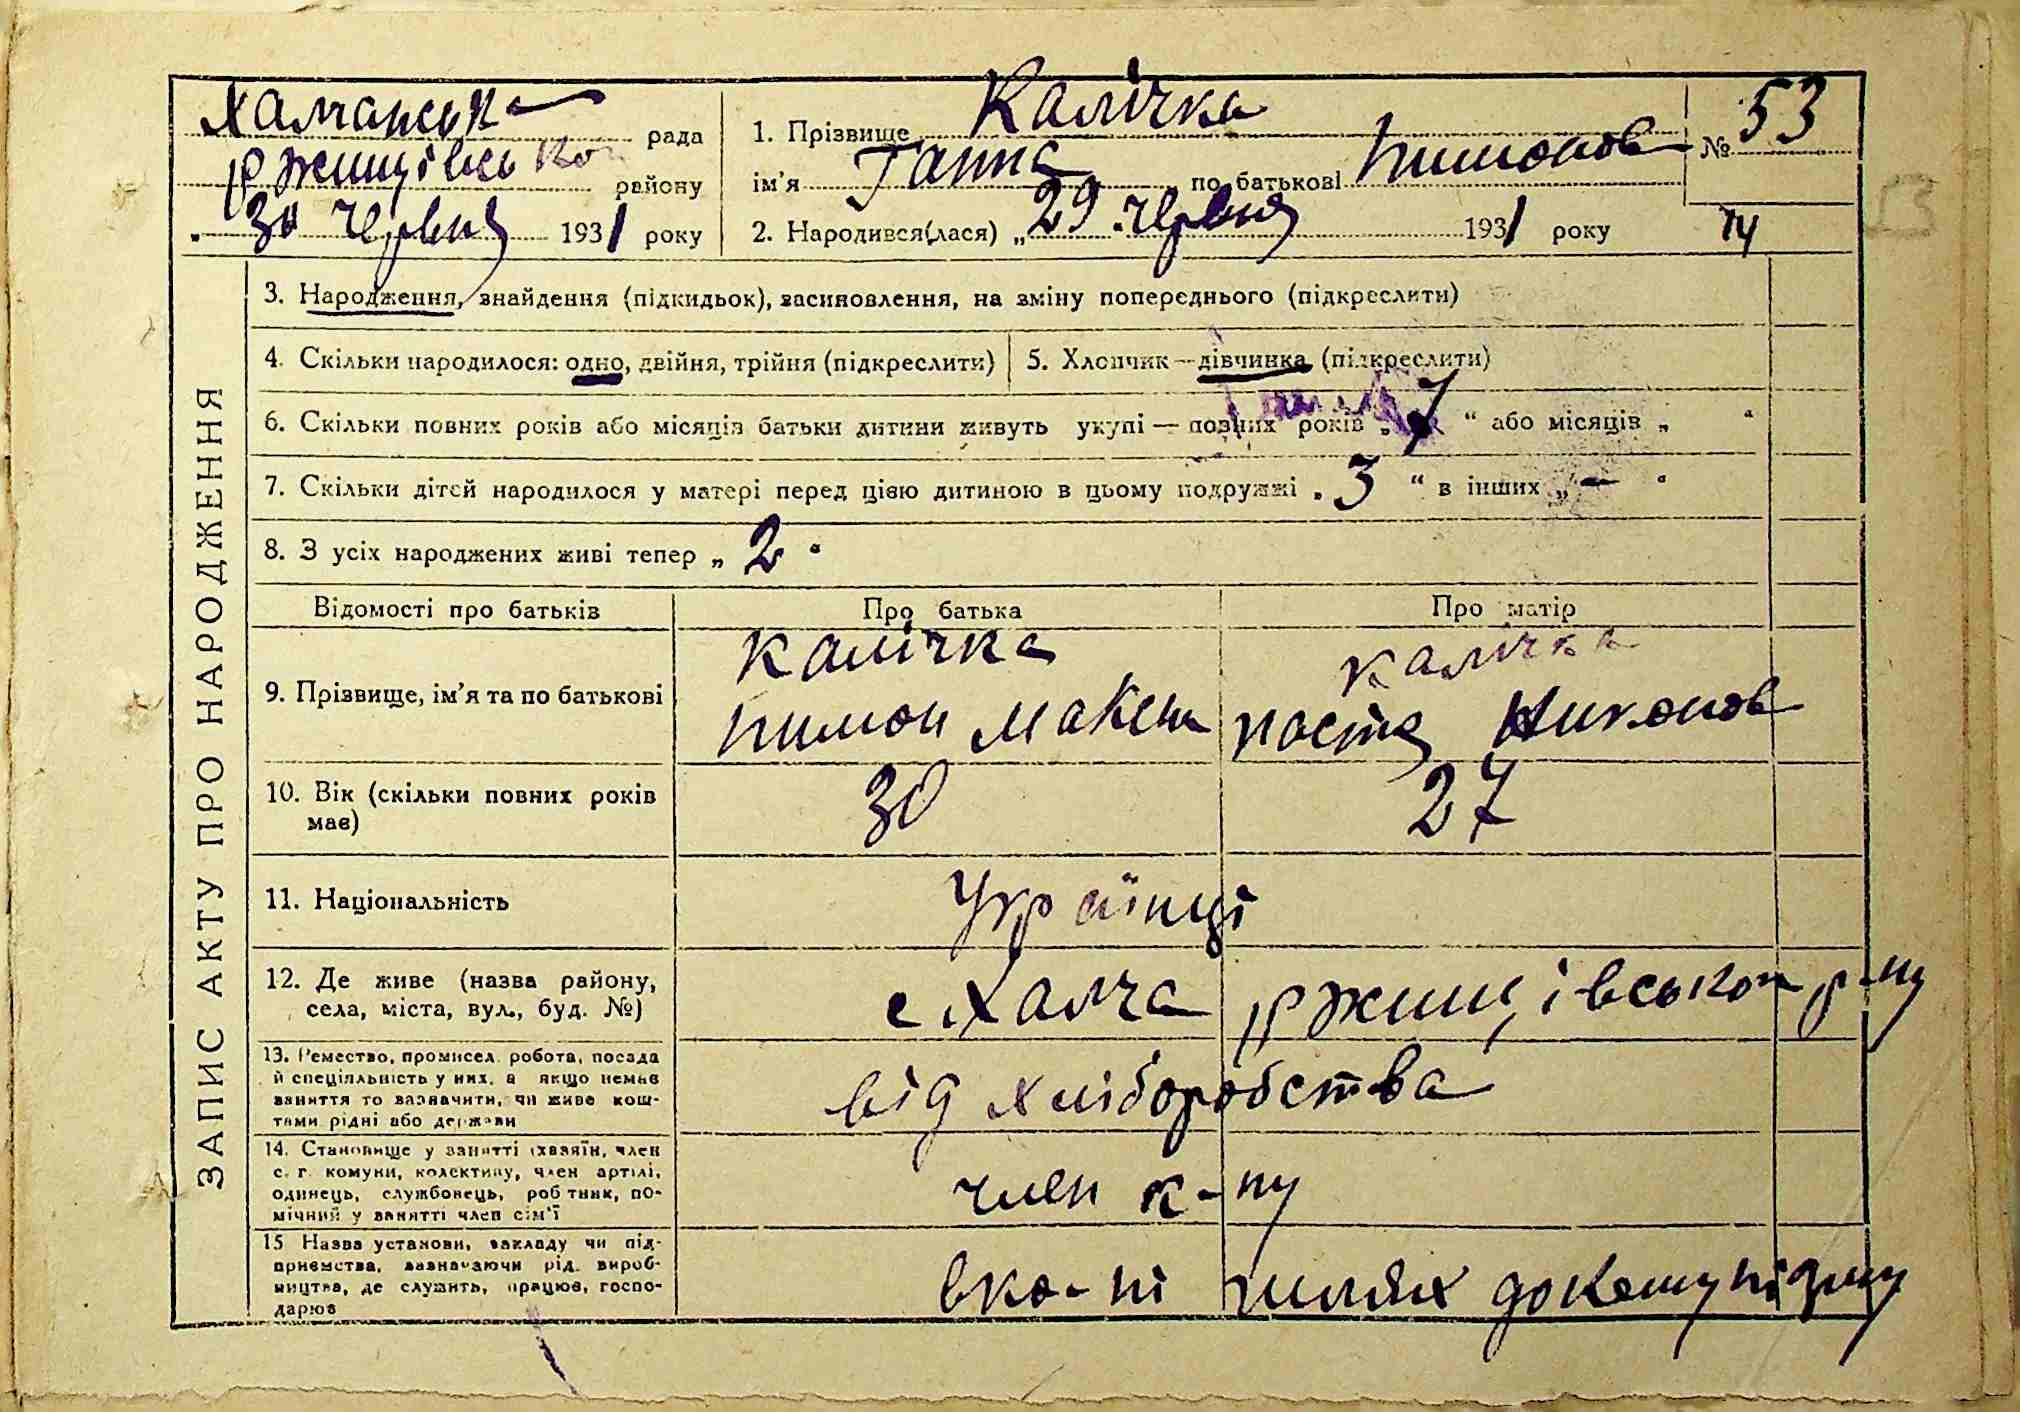 Халчанська рада
ржищівської району
30 червня 1931 року
1. Прізвище Калічка
ім'я Ганна по батькові Пимонов
2. Народився(лася) „29 червня 1931 року
№ 53
14
53
ЗАПИС АКТУ ПРО НАРОДЖЕННЯ
3. Народження, знайдення (підкидьок), засиновлення, на зміну попереднього (підкреслити)
4. Скільки народилося: одно, двійня, трійня (підкреслити)
5. Хлопчик—дівчинка (підкреслити)
6. Скільки повних років або місяців батьки дитини живуть укупі — повних років „7“ або місяців „ “
7. Скільки дітей народилося у матері перед цією дитиною в цьому подружжі „3“ в інших „—“
8. З усіх народжених живі тепер „2“
Відомості про батьків Про батька Про матір
9. Прізвище, ім'я та по батькові
Калічка
Пимон Макси
Калічка
Настя Никонов
10. Вік (скільки повних років
має)
30 27
11. Національність
Українці
12. Де живе (назва району,
села, міста, вул., буд. №)
с Халча ржищівського р-ну
13. Ремество, промисел, робота, посада
й спеціяльність у них, а якщо немає
заняття то зазначити, чи живе кош-
тами рідні або держави
від хліборобства
14. Становище у занятті (хазяїн, член
с. г. комуни, колективу, член артілі,
одинець, службовець, робітник, по-
мічний у занятті член сім'ї
член к-пу
15 Назва установи, закладу чи під-
приємства, зазначаючи рід вироб-
ництва, де служить, працює, госпо-
дарює
шлях до комунізму